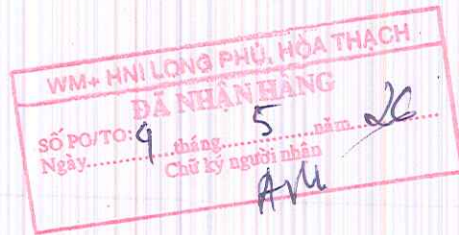 WM+ HNI LONG PHÚ, HÒA THẠCH
ĐÃ NHẬN HÀNG
SỐ PO/TO:
Ngày....9....tháng....5....năm....26
Chữ ký người nhận